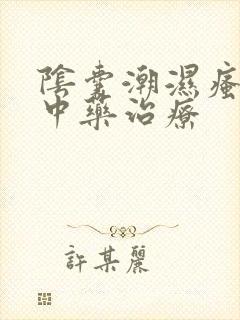 陰囊潮濕瘙
中藥治療
許某麗